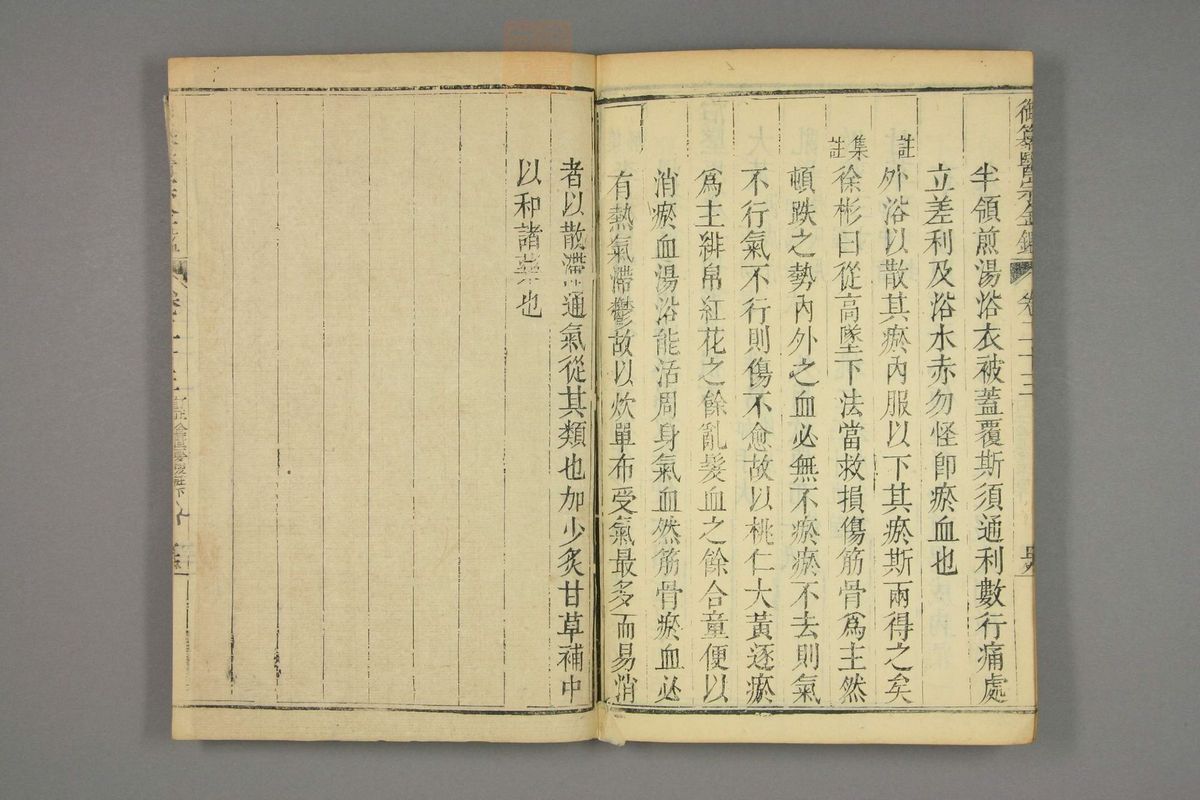 御纂醫宗金鑑 卷二十三
半領煎湯浴衣被蓋覆斯須通利數行痛處
立差利及浴水赤勿怪卽瘀血也
註
外浴以散其瘀內服以下其瘀斯兩得之矣
集註
徐彬曰從高墜下法當救損傷筋骨爲主然
頓跌之勢內外之血必無不瘀瘀不去則氣
不行氣不行則傷不愈故以桃仁大黃逐瘀
爲主緋帛紅花之餘亂髮血之餘合童便以
消瘀血湯浴能活周身氣血然筋骨瘀血必
有熱氣滯鬱故以炊單布受氣最多而易消
者以散滯通氣從其類也加少炙甘草補中
以和諸藥也